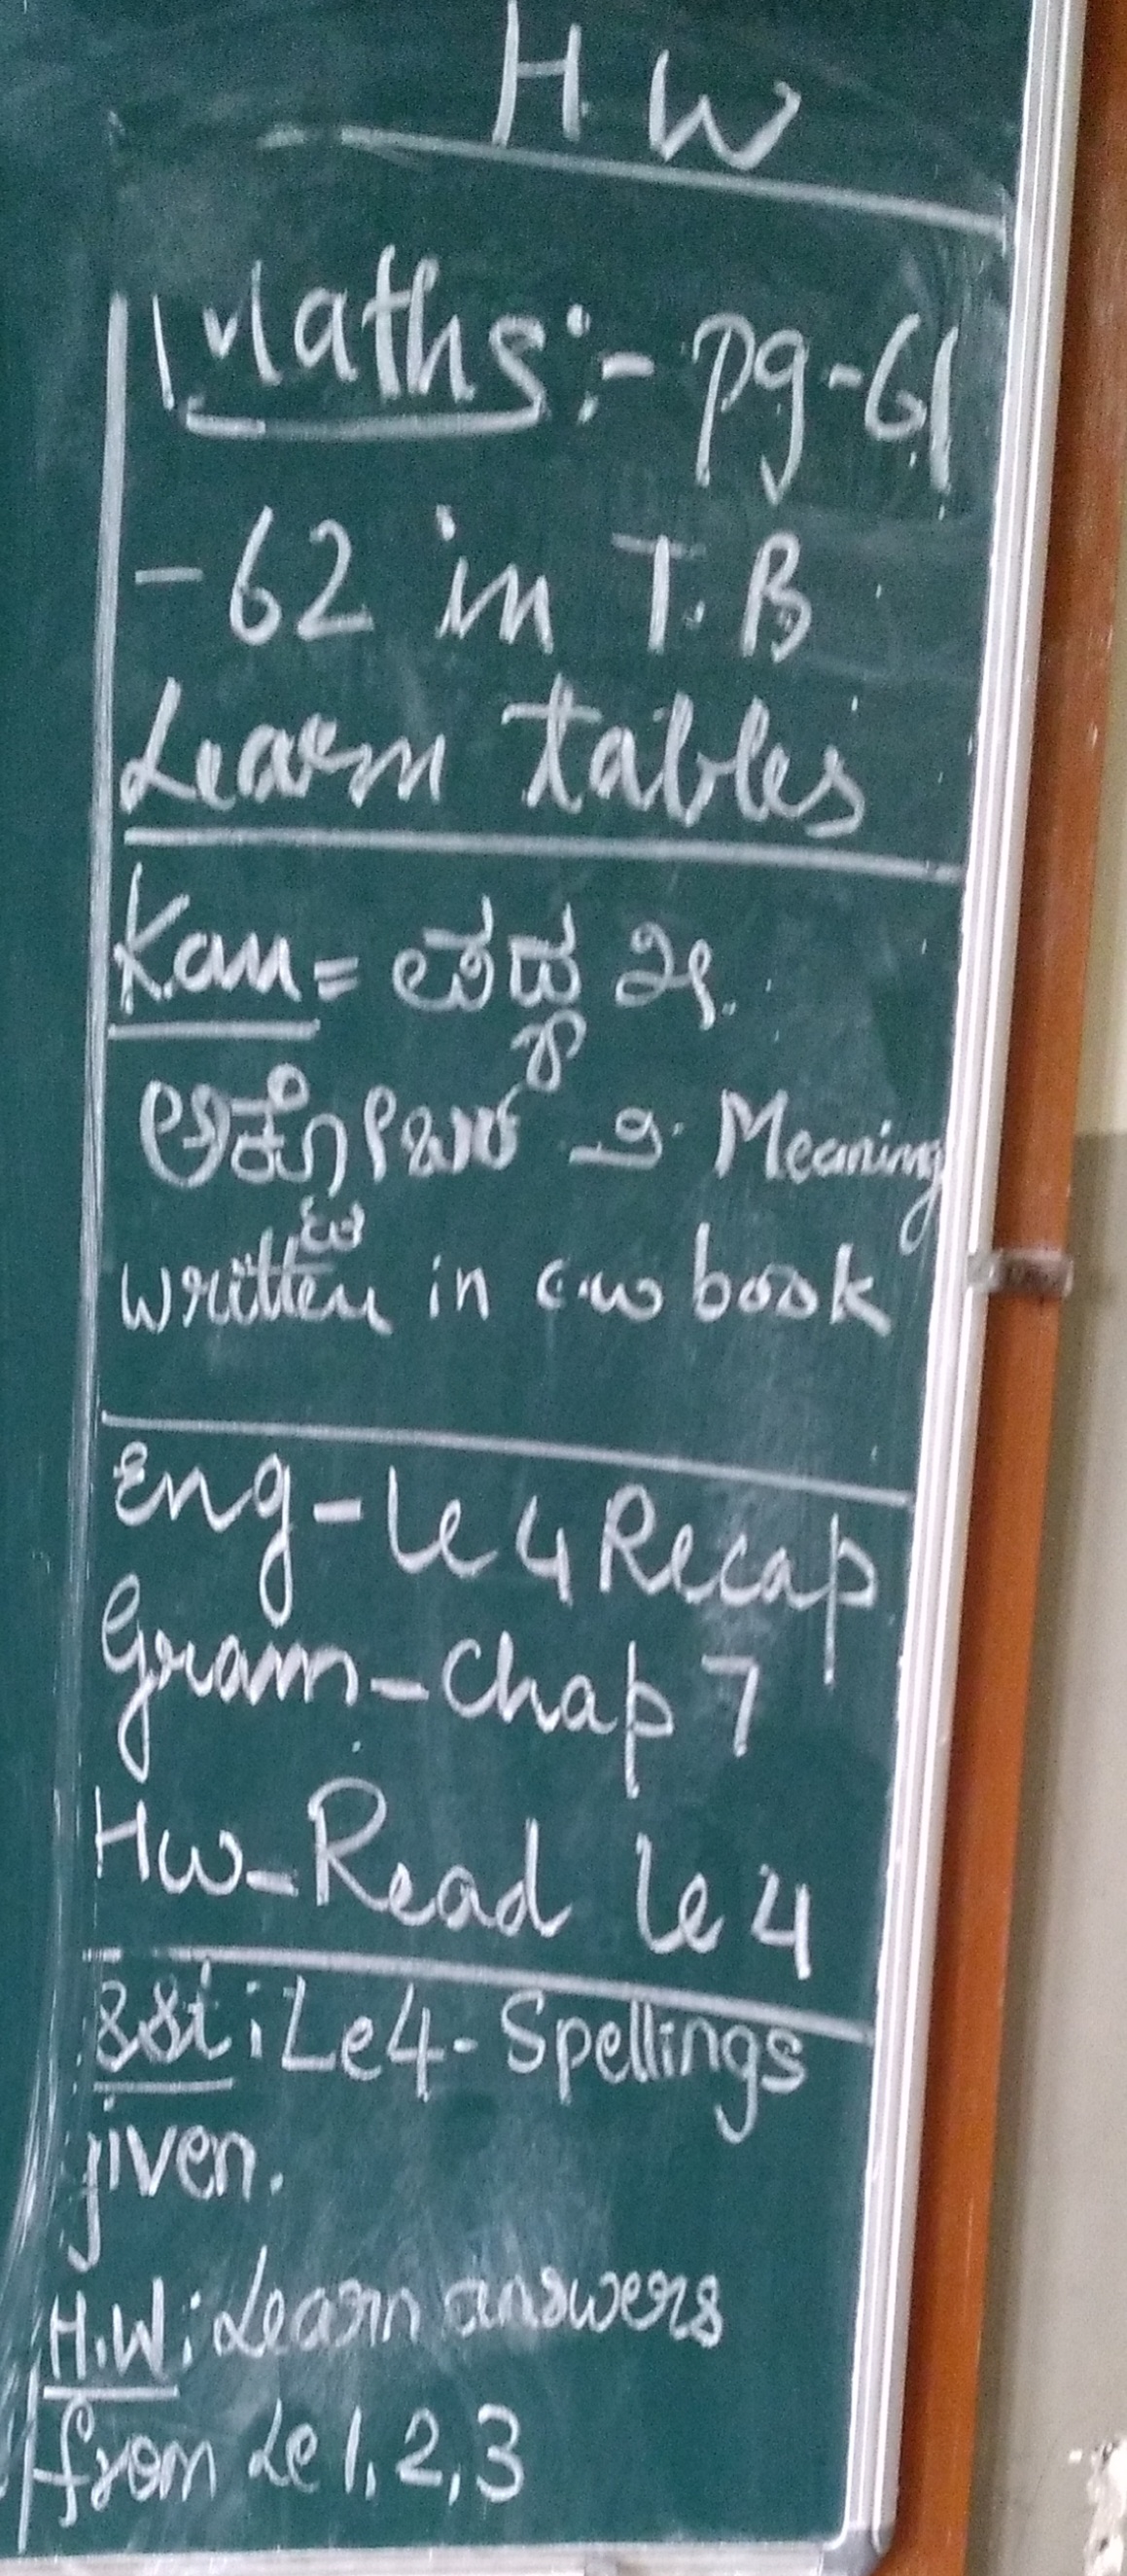 H.W
Maths:- Pg-61
-62 in T.B
Learn tables
Kan =
Meaning
written in c.w book
Eng - Le 4 Recap
Gram - Chap 7
Hw - Read Le 4
SSt: Le4 - Spellings
given.
H.W: Learn answers
from Le 1, 2, 3